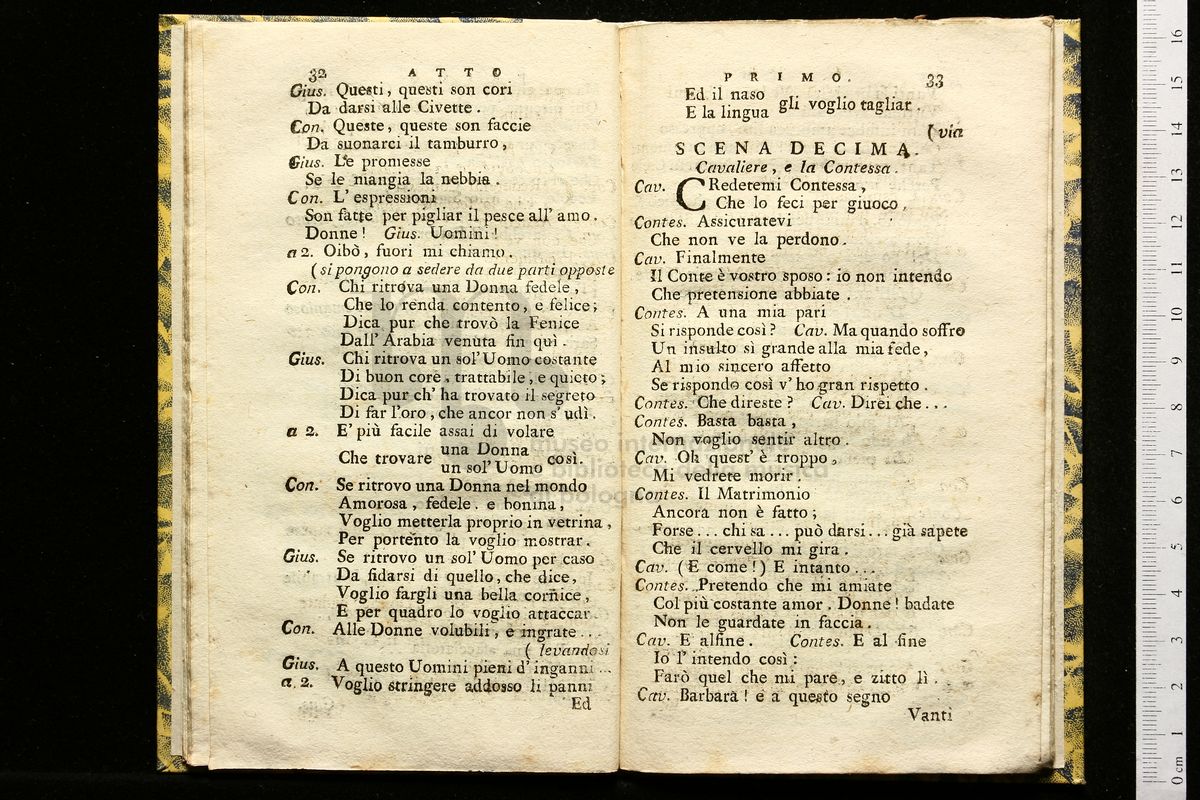 32 ATTO
Gius. Questi, questi son cori
Da darsi alle Civette.
Con. Queste, queste son faccie
Da suonarci il tamburro,
Gius. Le promesse
Se le mangia la nebbia.
Con. L' espressioni
Son fatte per pigliar il pesce all' amo.
Donne! Gius. Uomini!
a 2. Oibò, fuori mi chiamo.
(si pongono a sedere da due parti opposte
Con. Chi ritrova una Donna fedele,
Che lo renda contento, e felice;
Dica pur che trovò la Fenice
Dall' Arabia venuta fin quì.
Gius. Chi ritrova un sol' Uomo costante
Di buon core, trattabile, e quieto;
Dica pur ch' ha trovato il segreto
Di far l'oro, che ancor non s' udì.
a 2. E' più facile assai di volare
Che trovare una Donna così.
un sol' Uomo
Con. Se ritrovo una Donna nel mondo
Amorosa, fedele. e bonina,
Voglio metterla proprio in vetrina,
Per portento la voglio mostrar.
Gius. Se ritrovo un sol' Uomo per caso
Da fidarsi di quello, che dice,
Voglio fargli una bella cornice,
E per quadro lo voglio attaccar
Con. Alle Donne volubili, e ingrate...
(levandosi
Gius. A questo Uomini pieni d' inganni...
a 2. Voglio stringere addosso li panni
Ed
PRIMO. 33
Ed il naso
E la lingua gli voglio tagliar.
(via
SCENA DECIMA.
Cavaliere, e la Contessa.
Cav. CRedetemi Contessa,
Che lo feci per giuoco.
Contes. Assicuratevi
Che non ve la perdono.
Cav. Finalmente
Il Conte è vostro sposo: io non intendo
Che pretensione abbiate.
Contes. A una mia pari
Si risponde così? Cav. Ma quando soffro
Un insulto sì grande alla mia fede,
Al mio sincero affetto
Se rispondo così v' ho gran rispetto.
Contes. Che direste? Cav. Direi che...
Contes. Basta basta,
Non voglio sentir altro.
Cav. Oh quest' è troppo,
Mi vedrete morir.
Contes. Il Matrimonio
Ancora non è fatto;
Forse... chi sa... può darsi... già sapete
Che il cervello mi gira.
Cav. (E come!) E intanto...
Contes. Pretendo che mi amiate
Col più costante amor. Donne! badate
Non le guardate in faccia.
Cav. E alfine. Contes. E al fine
Io l' intendo così:
Farò quel che mi pare, e zitto lì.
Cav. Barbara! e a questo segno
Vanti
museo
biblioteca della musica
di bologna
0 cm 1 2 3 4 5 6 7 8 9 10 11 12 13 14 15 16